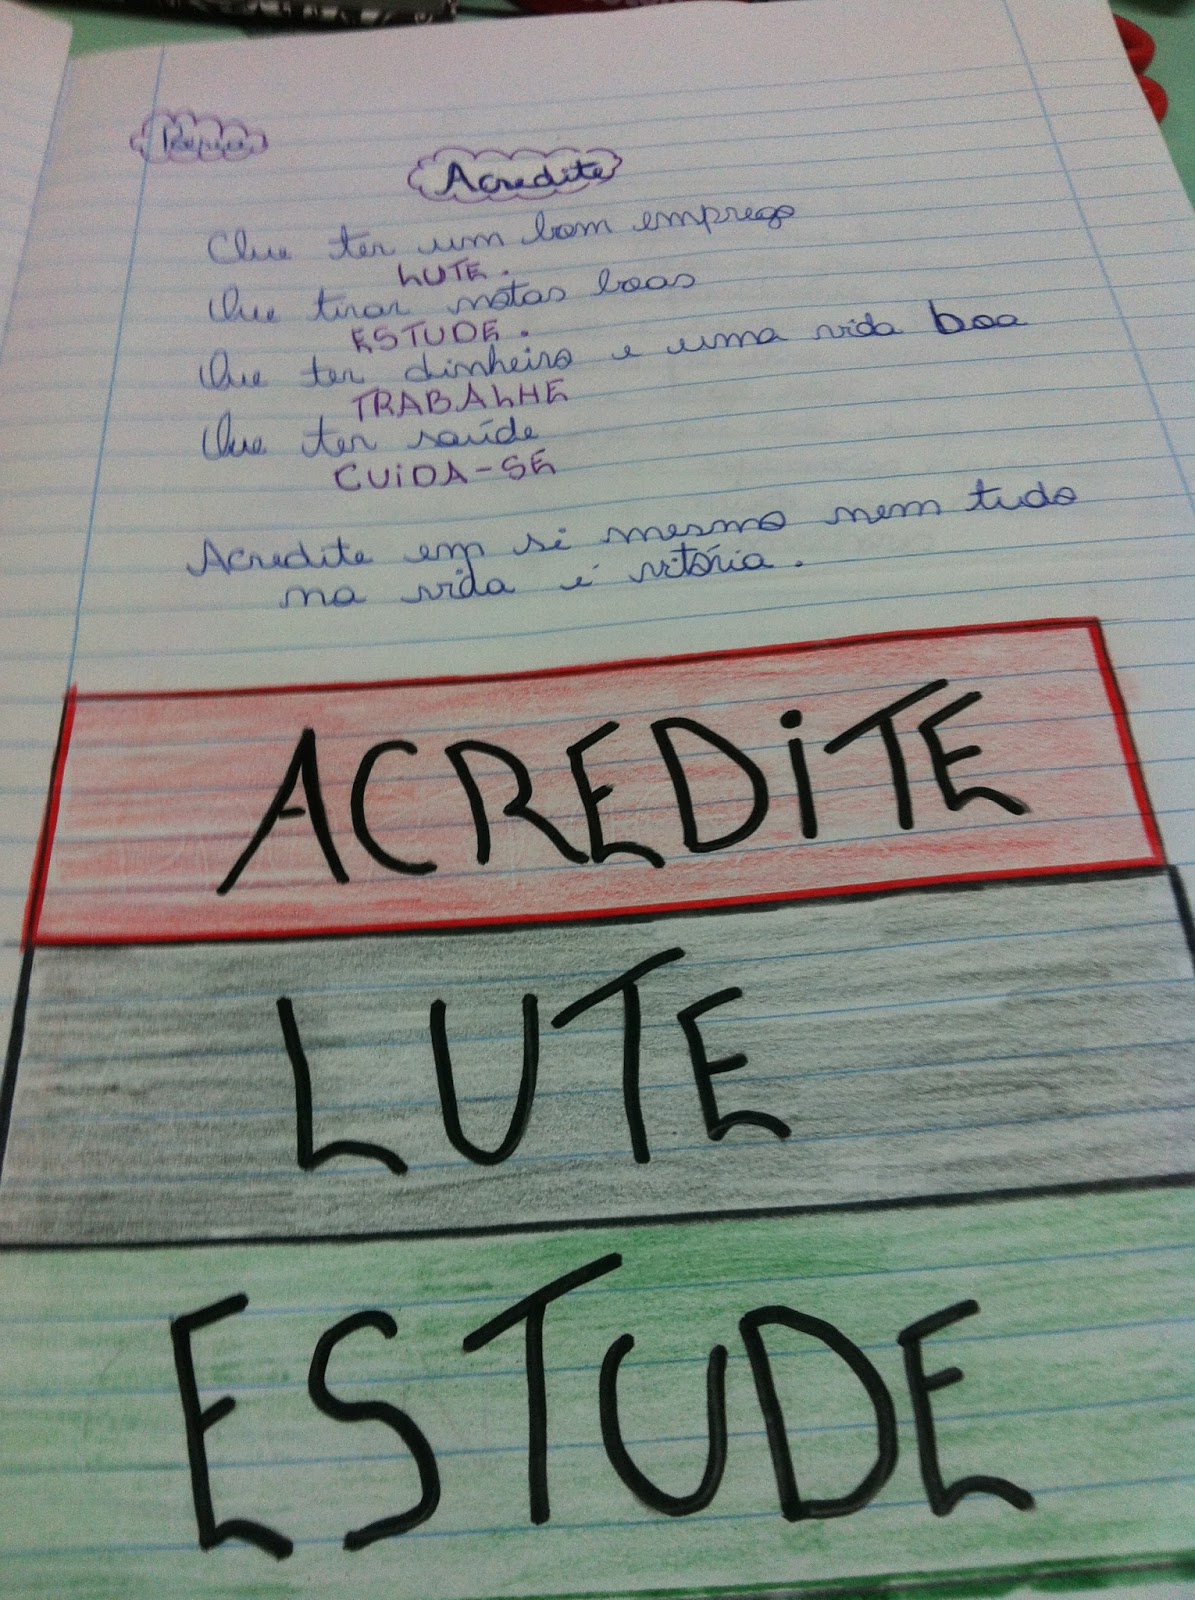 Acredite
Que ter um bom emprego
LUTE.
Que tirar notas boas
ESTUDE.
Que ter dinheiro e uma vida boa
TRABALHE
Que ter saúde
CUiDA-SE
Acredite em si mesmo nem tudo
na vida é vitória.
ACREDiTE
LUTE
ESTUDE